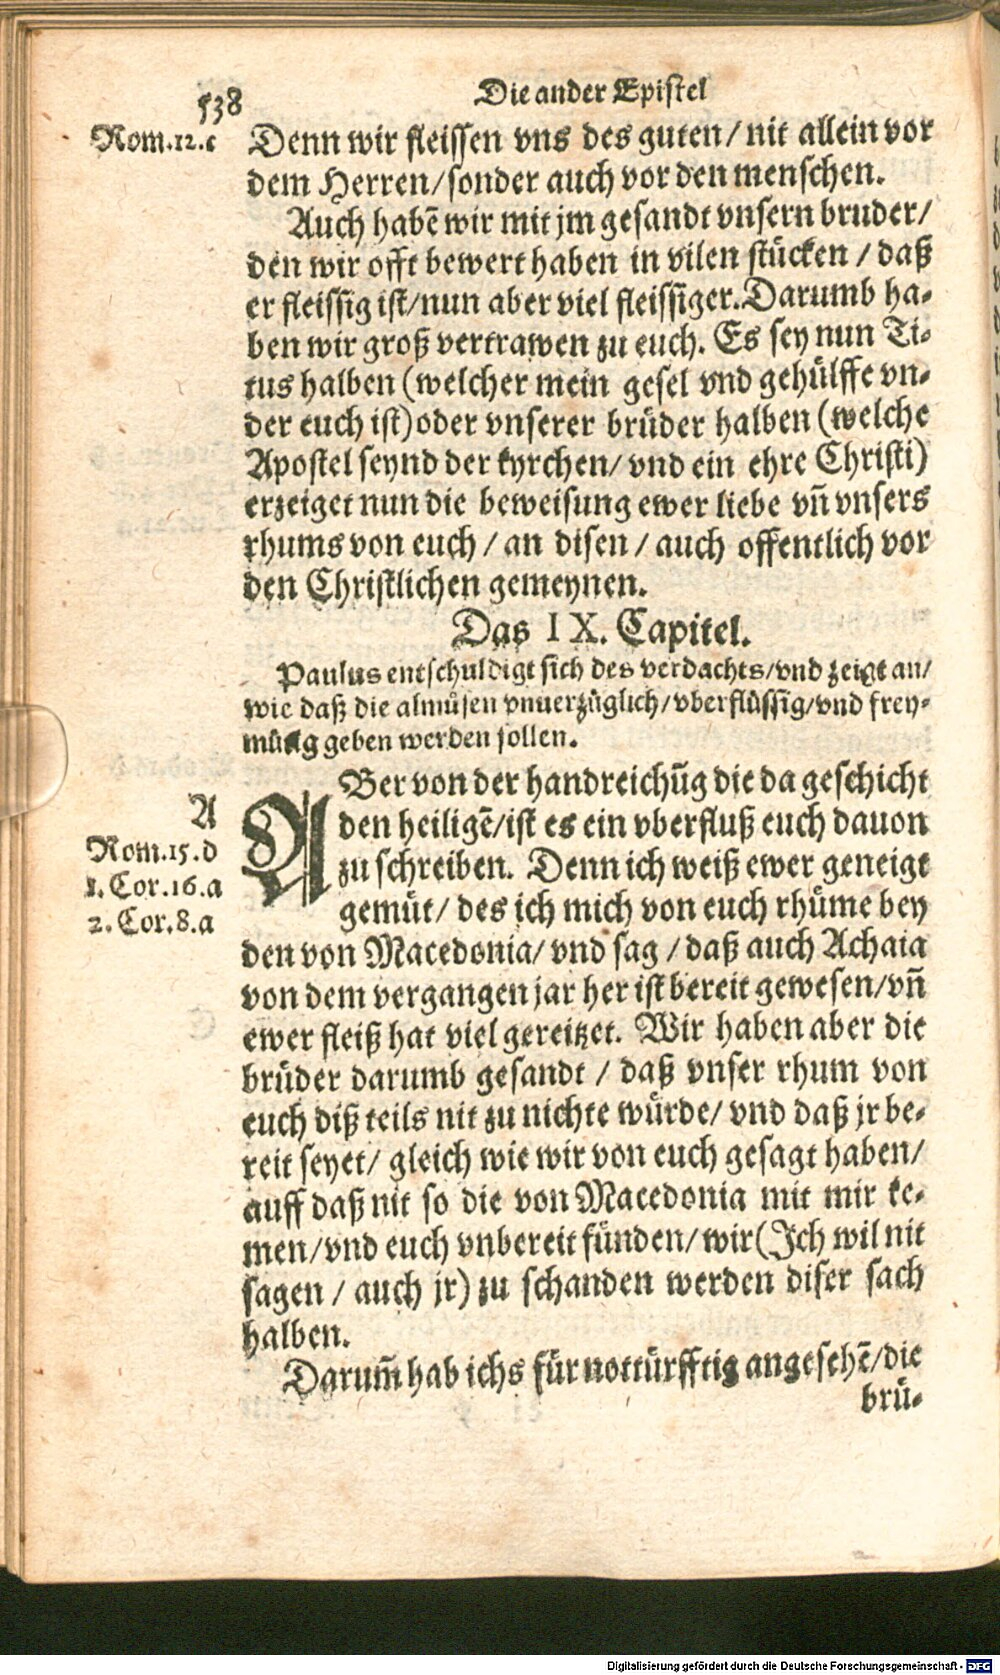 538
Die ander Epistel
Rom.12.c
Denn wir fleissen vns des guten/ nit allein vor
dem Herren/sonder auch vor den menschen.
Auch habẽ wir mit jm gesandt vnsern bruder/
den wir offt bewert haben in vilen stücken / daß
er fleissig ist/nun aber viel fleissiger. Darumb ha-
ben wir groß vertrawen zu euch. Es sey nun Ti-
tus halben (welcher mein gesel vnd gehülffe vn-
der euch ist) oder vnserer brüder halben (welche
Apostel seynd der kyrchen/ vnd ein ehre Christi)
erzeiget nun die beweisung ewer liebe vñ vnsers
rhums von euch / an disen / auch offentlich vor
den Christlichen gemeynen.
Das IX. Capitel.
Paulus entschuldigt sich des verdachts/vnd zeigt an/
wie daß die almůsen vnuerzüglich/vberflüssig/vnd frey-
mütig geben werden sollen.
A
Rom.15.d
1.Cor.16.a
2.Cor.8.a
ABer von der handreichũg die da geschicht
den heiligẽ/ist es ein vberfluß euch dauon
zu schreiben. Denn ich weiß ewer geneigt
gemüt/ des ich mich von euch rhüme bey
den von Macedonia/ vnd sag / daß auch Achaia
von dem vergangen jar her ist bereit gewesen/vñ
ewer fleiß hat viel gereitzet. Wir haben aber die
brüder darumb gesandt / daß vnser rhum von
euch diß teils nit zu nichte würde/ vnd daß jr be-
reit seyet/ gleich wie wir von euch gesagt haben/
auff daß nit so die von Macedonia mit mir ke-
men/vnd euch vnbereit fünden/ wir (Ich wil nit
sagen / auch jr) zu schanden werden diser sach
halben.
Darum̃ hab ichs für nottürfftig angesehẽ/die
brü-
Digitalisierung gefördert durch die Deutsche Forschungsgemeinschaft - DFG